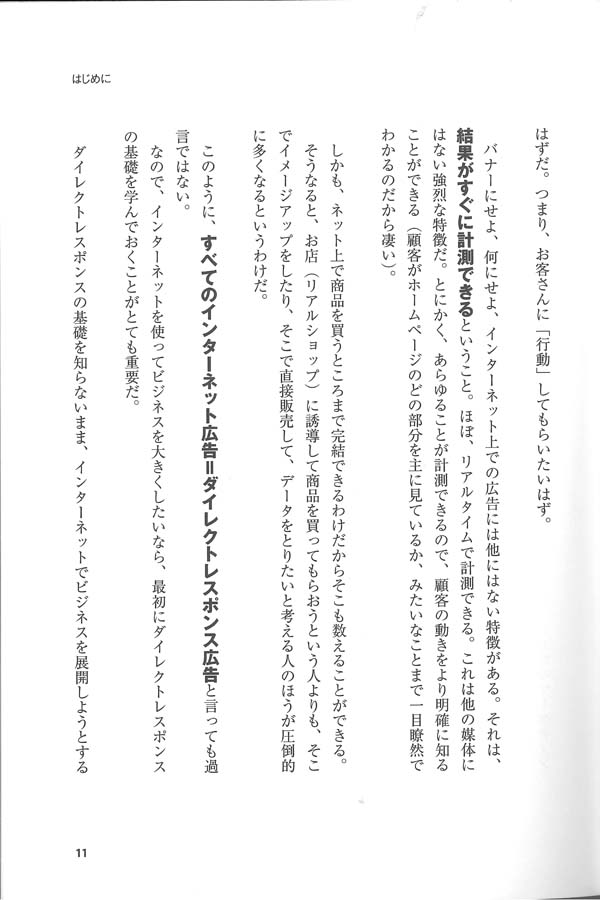 はじめに
はずだ。つまり、お客さんに「行動」してもらいたいはず。
バナーにせよ、何にせよ、インターネット上での広告には他にはない特徴がある。それは、
結果がすぐに計測できるということ。ほぼ、リアルタイムで計測できる。これは他の媒体に
はない強烈な特徴だ。とにかく、あらゆることが計測できるので、顧客の動きをより明確に知る
ことができる（顧客がホームページのどの部分を主に見ているか、みたいなことまで一目瞭然で
わかるのだから凄い）。
しかも、ネット上で商品を買うところまで完結できるわけだからそこも数えることができる。
そうなると、お店（リアルショップ）に誘導して商品を買ってもらおうという人よりも、そこ
でイメージアップをしたり、そこで直接販売して、データをとりたいと考える人のほうが圧倒的
に多くなるというわけだ。
このように、すべてのインターネット広告＝ダイレクトレスポンス広告と言っても過
言ではない。
なので、インターネットを使ってビジネスを大きくしたいなら、最初にダイレクトレスポンス
の基礎を学んでおくことがとても重要だ。
ダイレクトレスポンスの基礎を知らないまま、インターネットでビジネスを展開しようとする
11